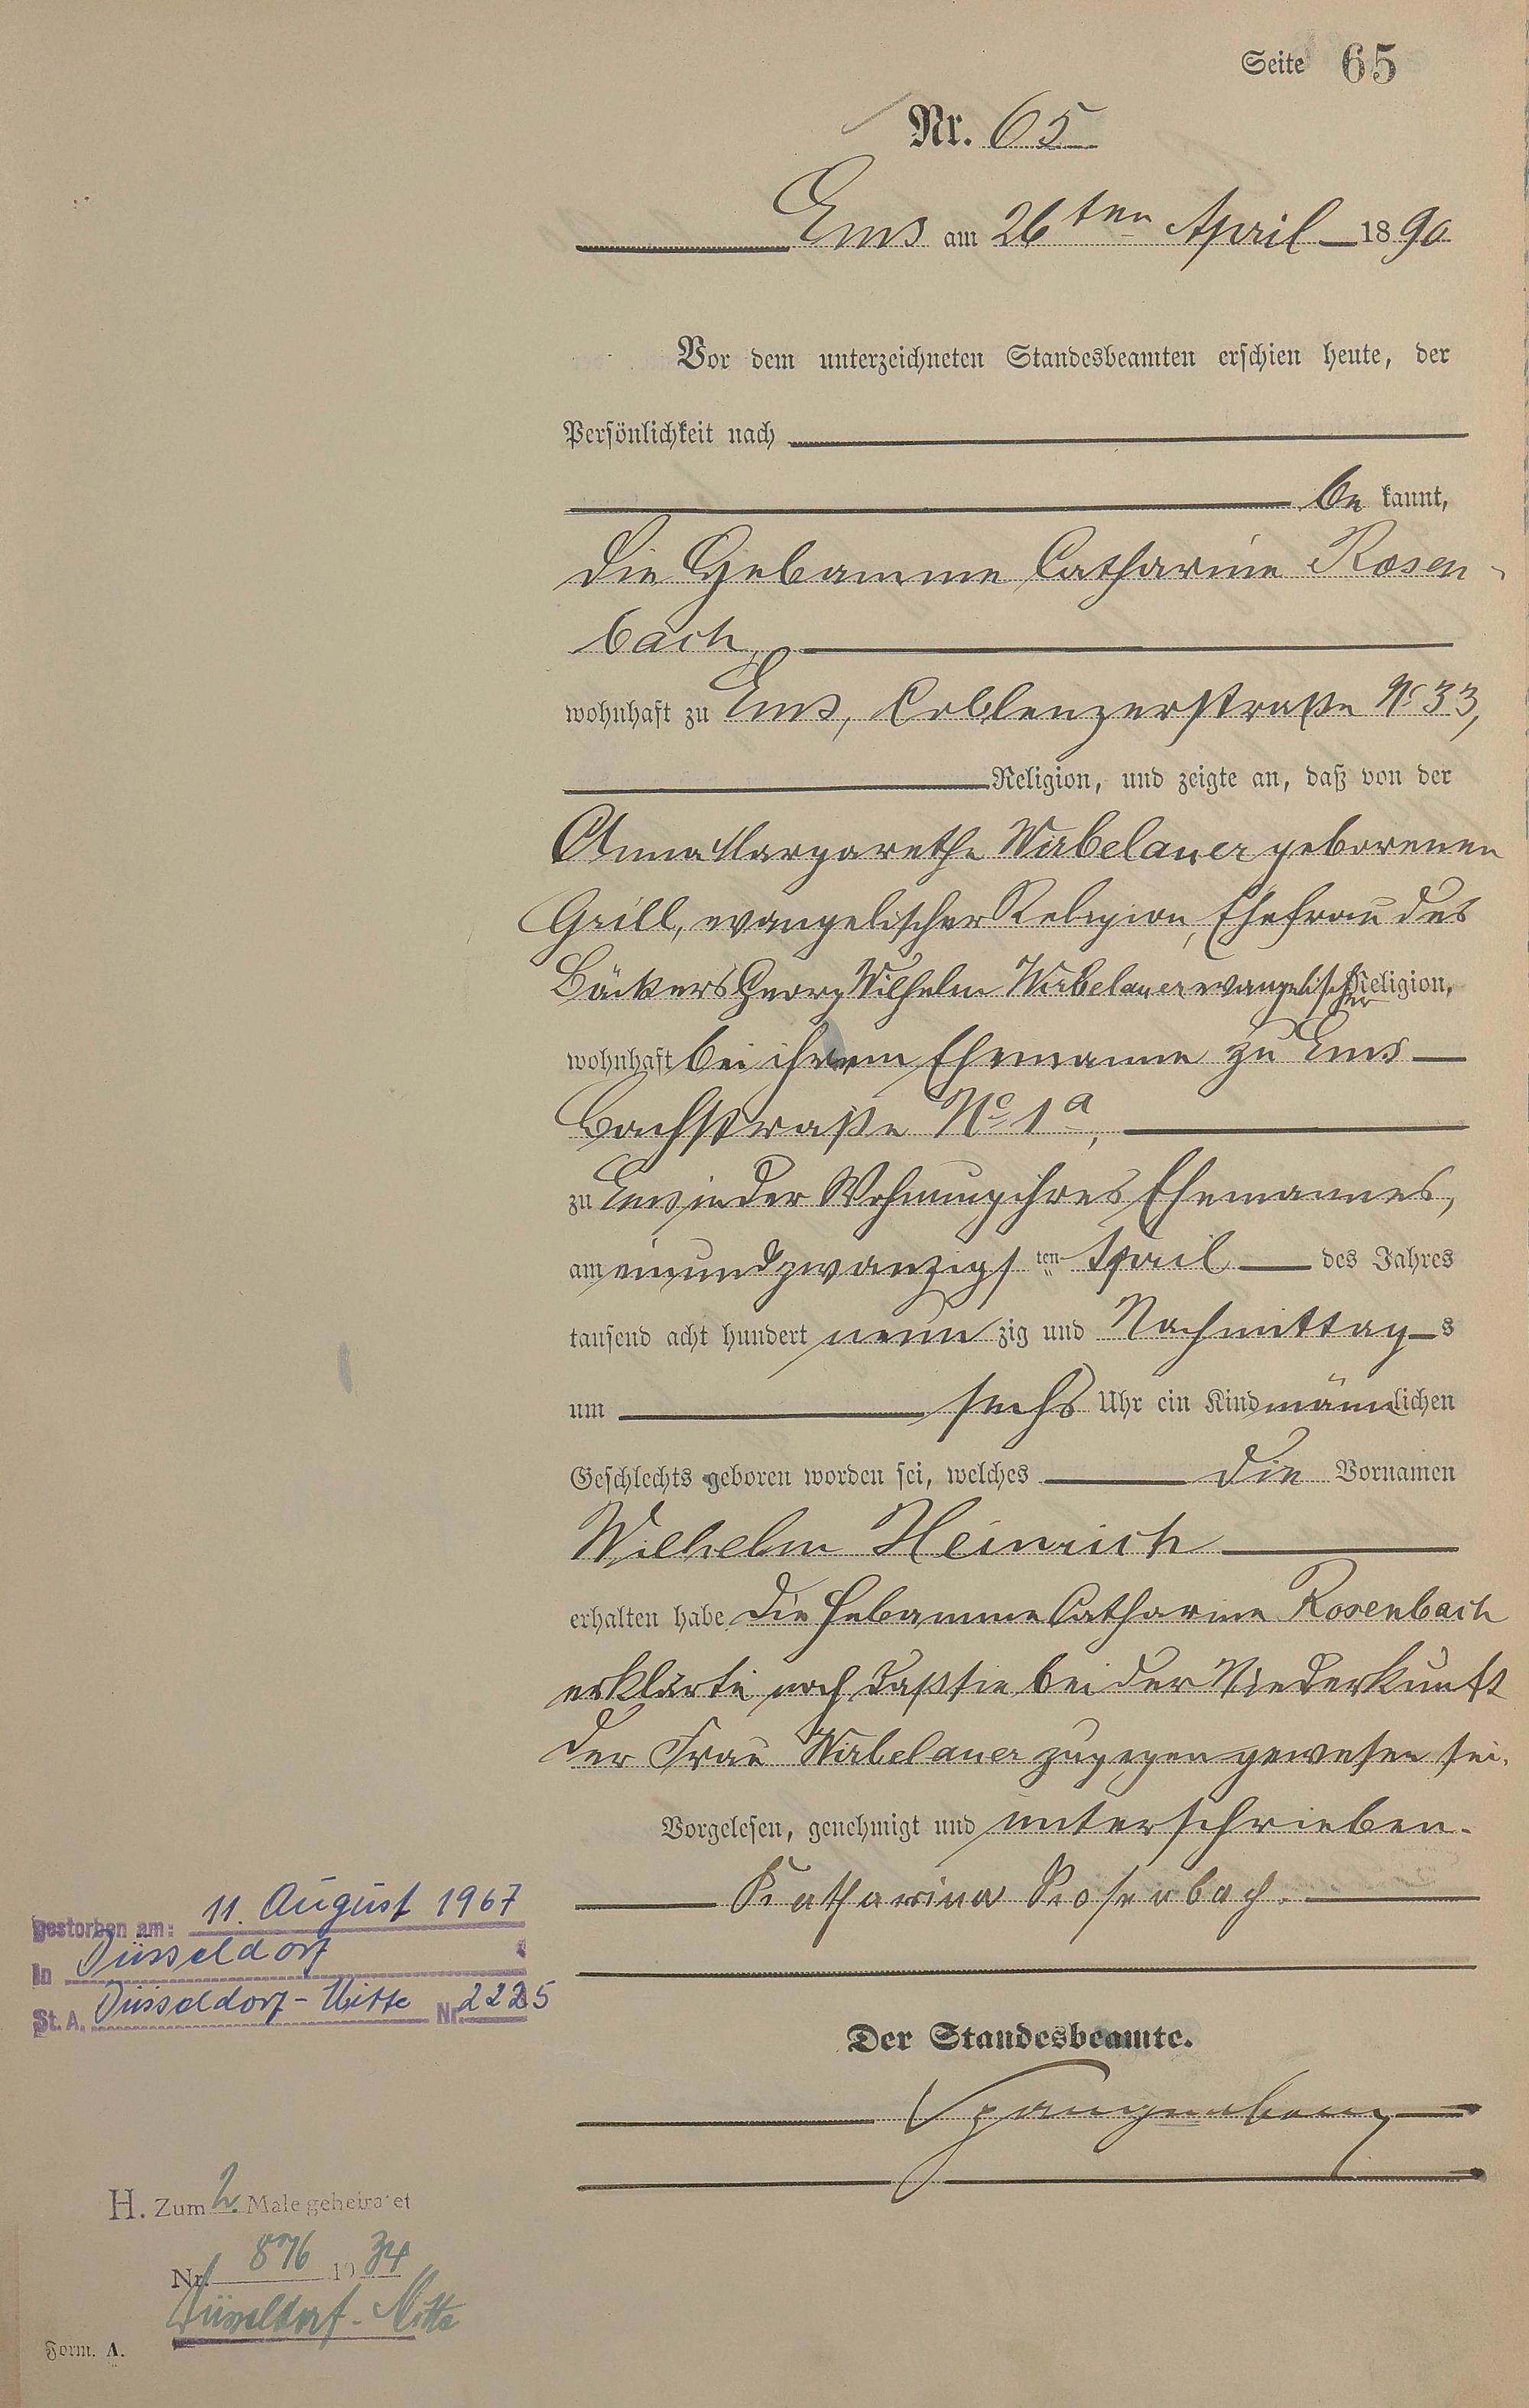 Seite 65
Nr. 65
Ems am 26ten April 1890
Vor dem unterzeichneten Standesbeamten erschien heute, der
Persönlichkeit nach
be kannt,
die Hebamme Catharine Rosen-
bach,
wohnhaft zu Ems, Coblenzerstraße No 33,
Religion, und zeigte an, daß von der
Anna Margarethe Wirbelauer geborenen
Grill, evangelischer Religion, Ehefrau des
Bäckers Georg Wilhelm Wirbelauer evangelischer Religion,
wohnhaft bei ihrem Ehemanne zu Ems
Bachstraße No 1a,
zu Ems in der Wohnung ihres Ehemannes,
am einundzwanzigsten April des Jahres
tausend acht hundert neunzig und Nachmittags
um sechs Uhr ein Kind männlichen
Geschlechts geboren worden sei, welches die Vornamen
Wilhelm Heinrich
erhalten habe die Hebamme Catharine Rosenbach
erklärte noch daß sie bei der Niederkunft
der Frau Wirbelauer zugegen gewesen sei.
Vorgelesen, genehmigt und unterschrieben.
Katharina Rosenbach.
Der Standesbeamte.
Spangenberg
gestorben am: 11. August 1967
in Düsseldorf
St. A. Düsseldorf-Mitte Nr. 2225
H. Zum 2. Male geheiratet
Nr. 876 1934
Düsseldorf-Mitte
Form. A.